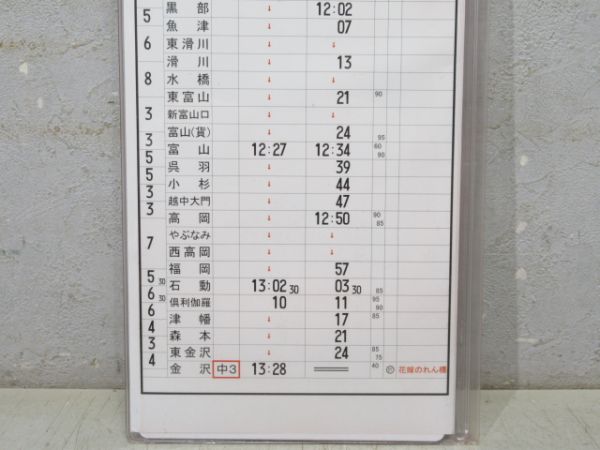 黒部 ↓ 12:02
5
魚津 ↓ 07
6 東滑川 ↓ ↓
滑川 ↓ 13
8 水橋 ↓ ↓
東富山 ↓ 21 90
3 新富山口 ↓ ↓
富山(貨) ↓ 24 95
3
富山 12:27 12:34 60 90
5
呉羽 ↓ 39
5
小杉 ↓ 44
3
越中大門 ↓ 47
3
高岡 ↓ 12:50 90 85
やぶなみ ↓ ↓
7
西高岡 ↓ ↓
福岡 ↓ 57
5 30
石動 13:02 30 03 30 85
6 30
倶利伽羅 10 11 95 90
6
津幡 ↓ 17 85
4
森本 ↓ 21
3
東金沢 ↓ 24 85 75
4
金沢 中3 13:28 40 花嫁のれん機